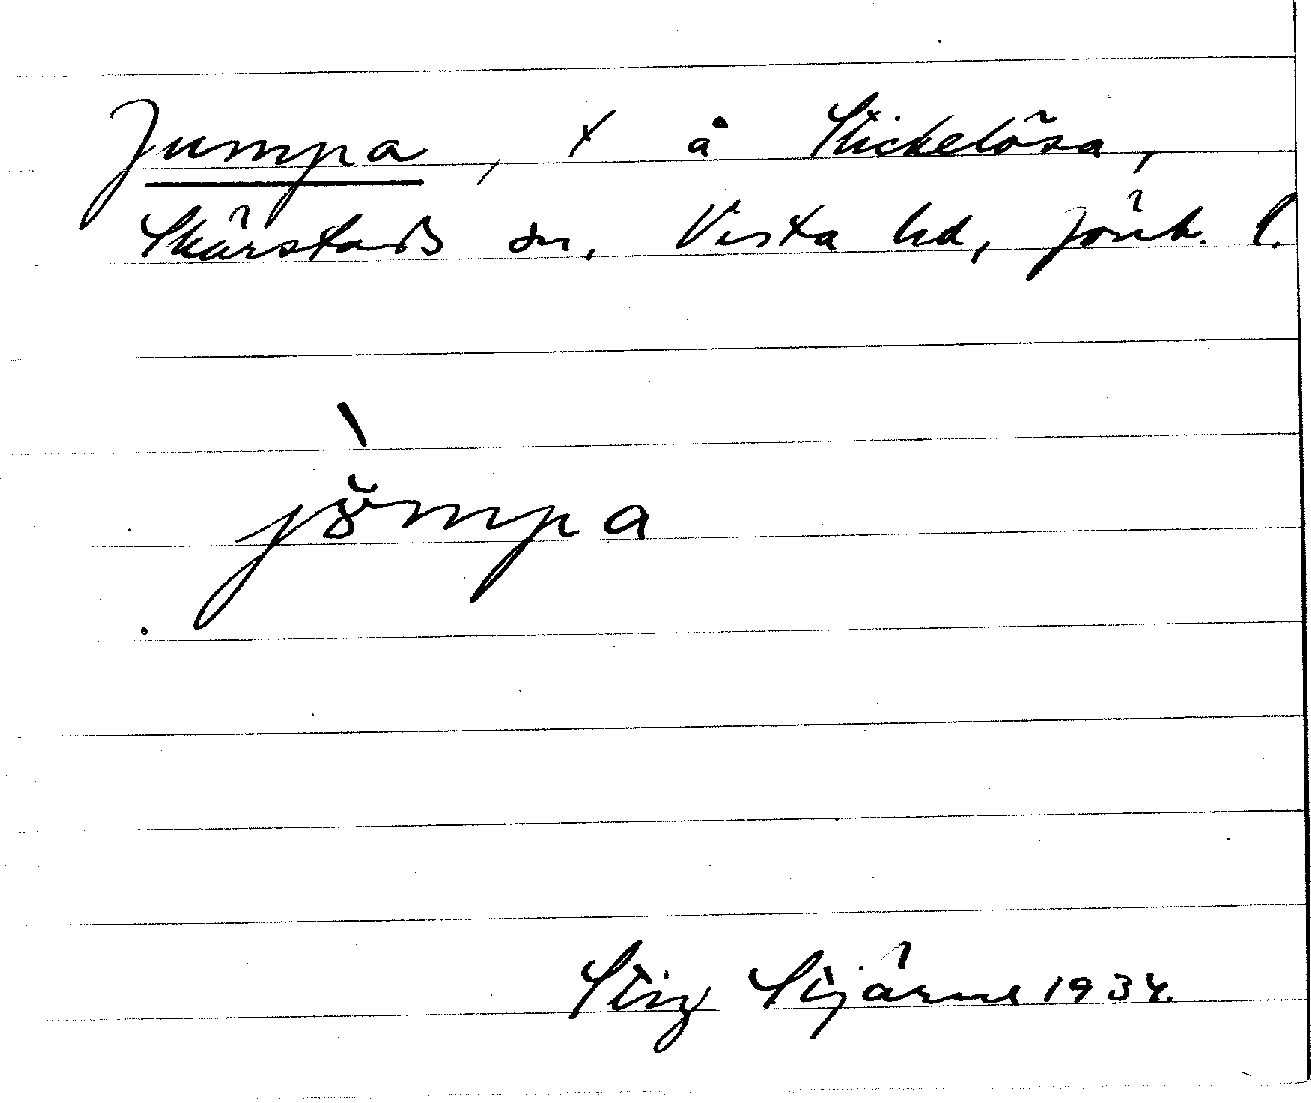 Jumpa, t å Stickelösa,
Skärstads sn, Vista hd, Jönk. l.
jo᷅mpa
Stig Stjärne 1934.